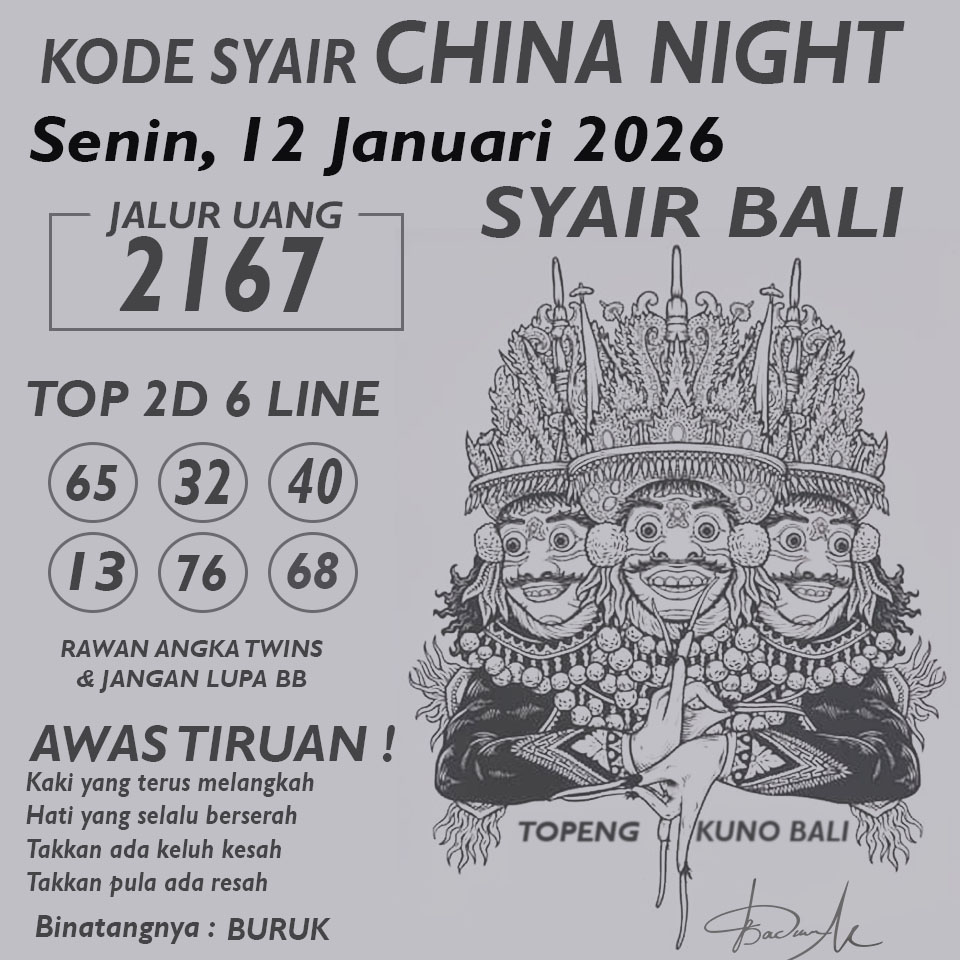 KODE SYAIR CHINA NIGHT
Senin, 12 Januari 2026
SYAIR BALI
JALUR UANG
2167
TOP 2D 6 LINE
65 32 40
13 76 68
RAWAN ANGKA TWINS
& JANGAN LUPA BB
AWAS TIRUAN !
Kaki yang terus melangkah
Hati yang selalu berserah
Takkan ada keluh kesah
Takkan pula ada resah
Binatangnya : BURUK
TOPENG KUNO BALI